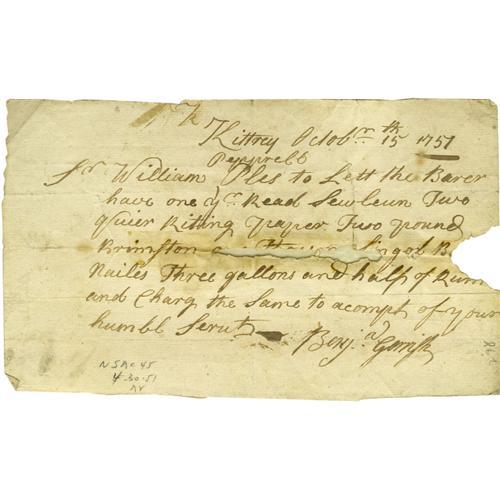 Kittrey Octobr 15th 1751
Pepprell
Sr William Ples to Lett the Barer
have one yr Read Two
quier Riting paper Two pound
Brimston
Nailes Three gallons and half of Rum
and Charg the Same to acompt of your
humbl Servt Benja Gerrish
NSAC 45
4-30-51